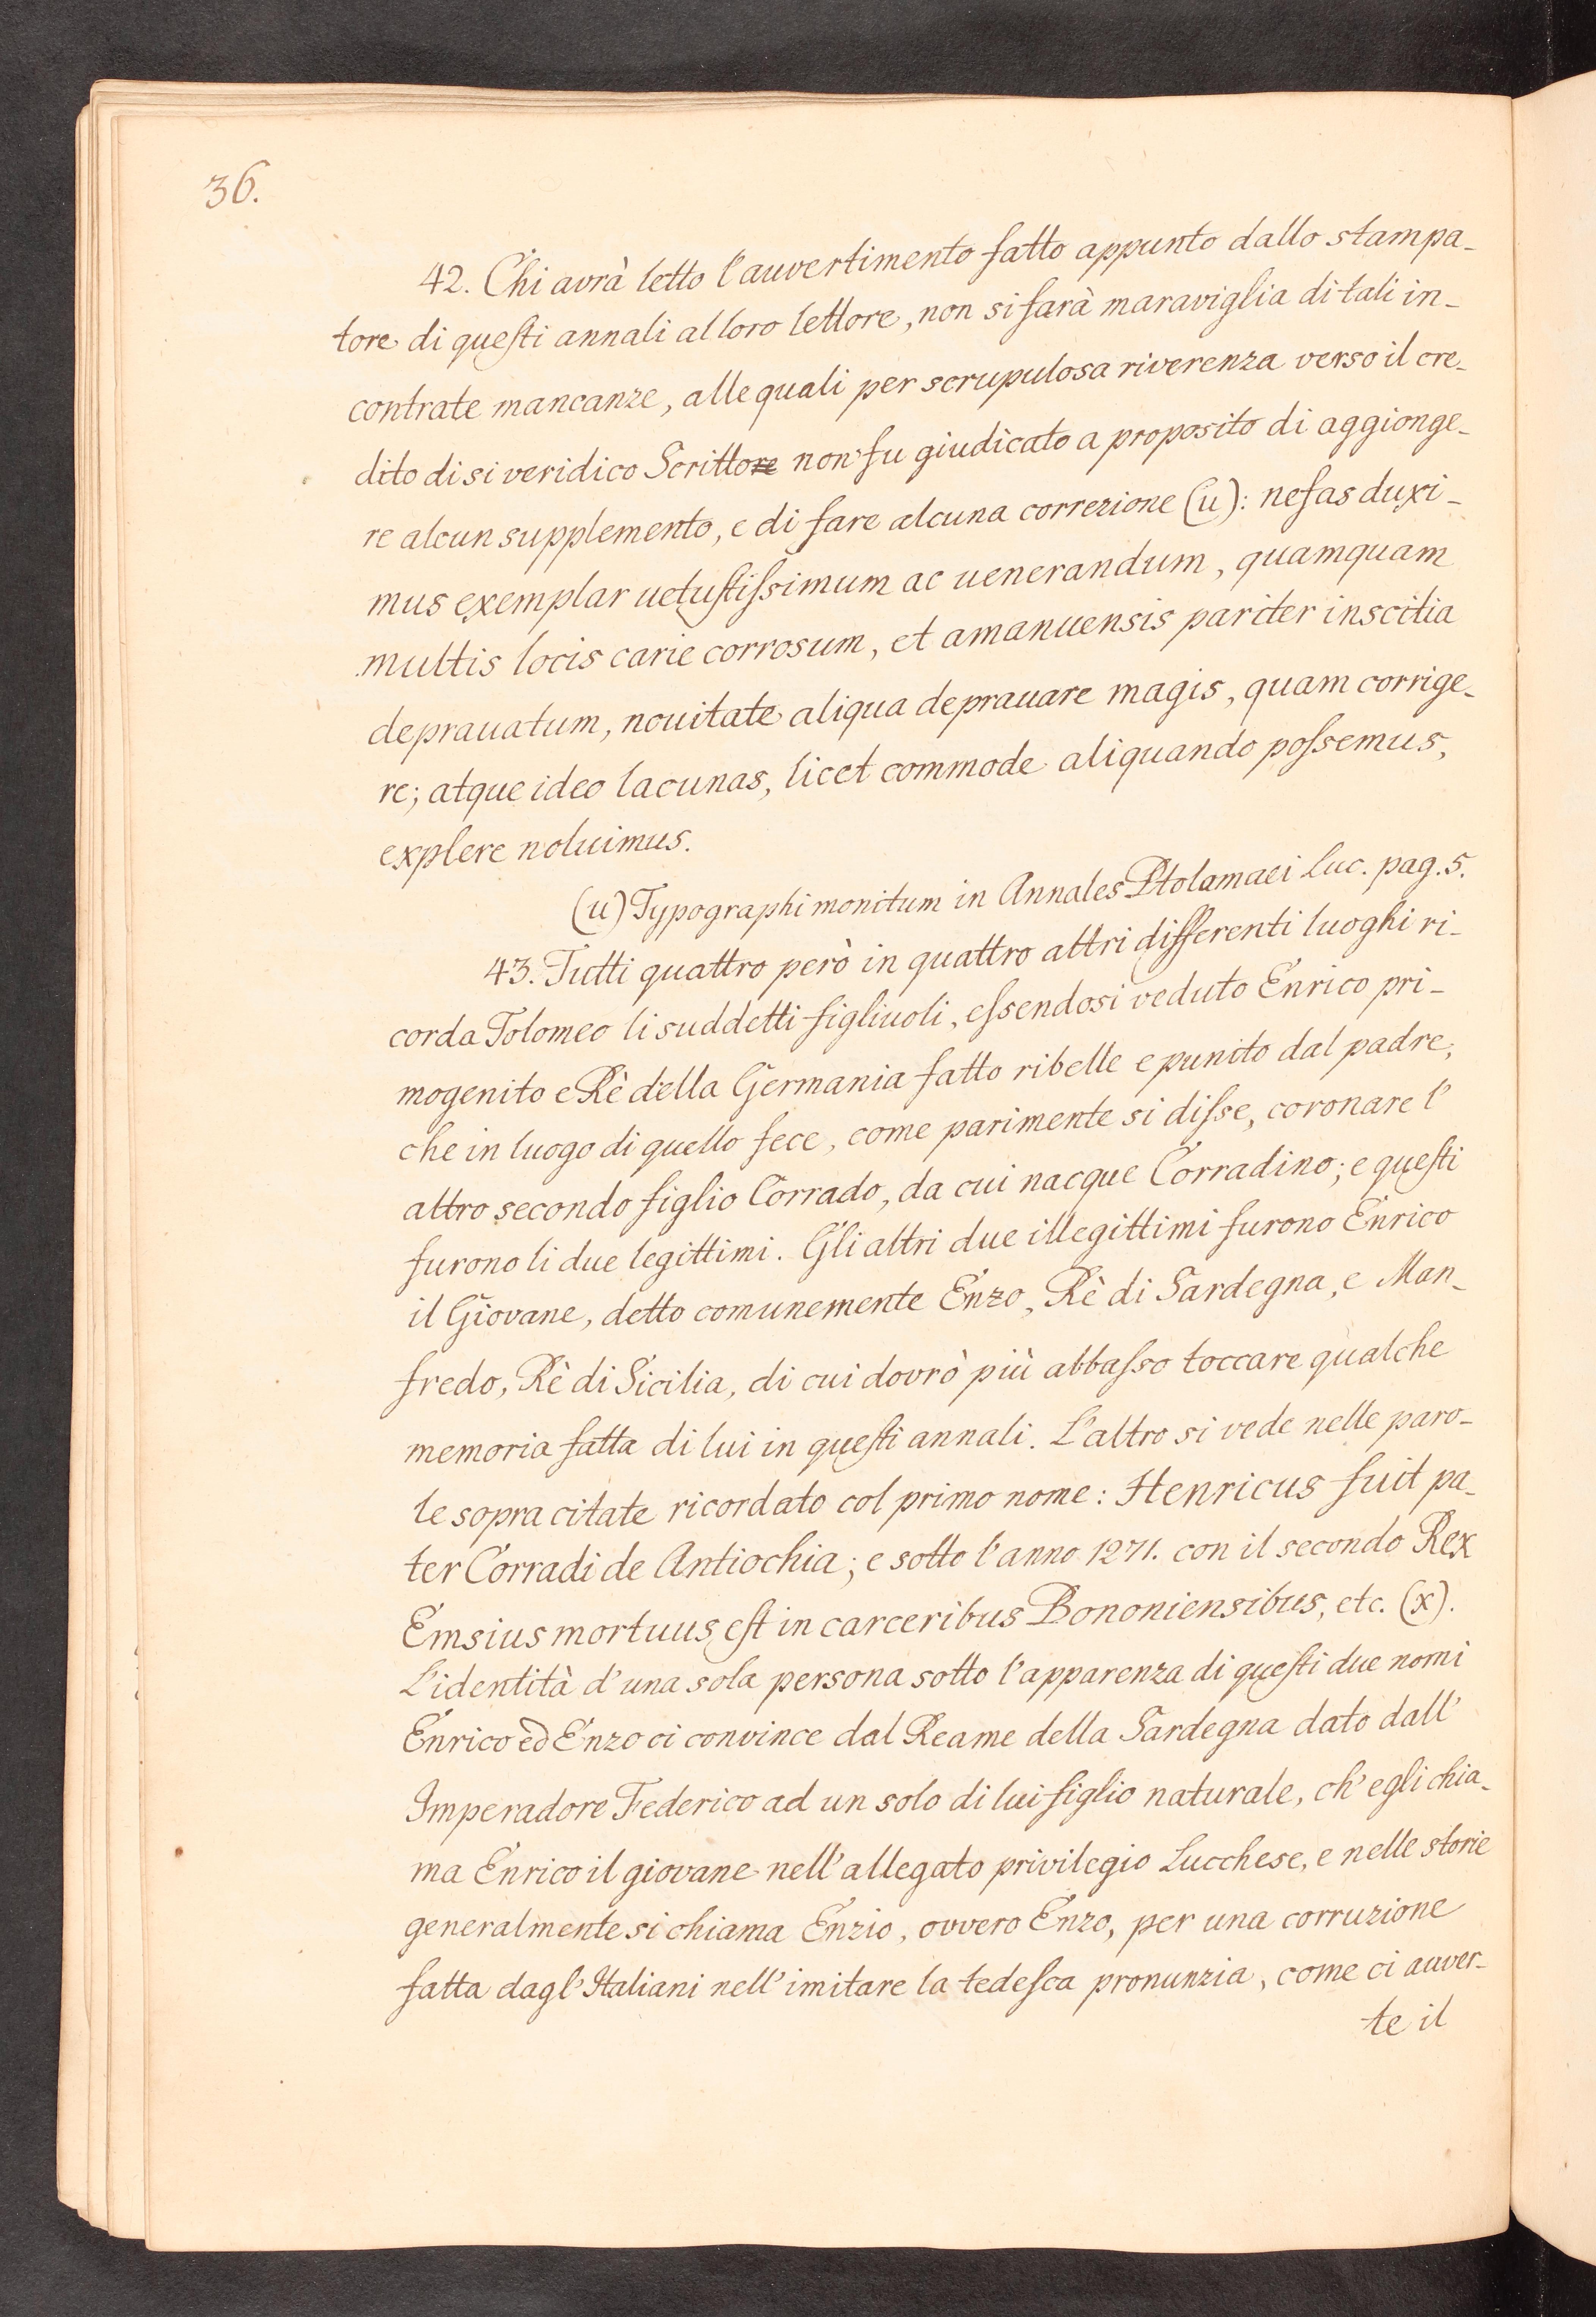 36.
42. Chi avrà letto l'auvertimento fatto appunto dallo stampa-
tore di questi annali al loro lettore, non si farà maraviglia di tali in-
contrate mancanze, alle quali per scrupulosa riverenza verso il cre-
dito di si veridico Scrittore non fu giudicato a proposito di aggionge-
re alcun supplemento, e di fare alcuna correzione (u): nefas duxi-
mus exemplar uetustissimum ac uenerandum, quamquam
multis locis carie corrosum, et amanuensis pariter inscitia
deprauatum, nouitate aliqua deprauare magis, quam corrige-
re; atque ideo lacunas, licet commode aliquando possemus,
explere noluimus.
(u) Typographi monitum in Annales Ptolamaei Luc. pag. 5.
43. Tutti quattro però in quattro altri differenti luoghi ri-
corda Tolomeo li suddetti figliuoli, essendosi veduto Enrico pri-
mogenito e Rè della Germania fatto ribelle e punito dal padre,
che in luogo di quello fece, come parimente si disse, coronare l'
altro secondo figlio Corrado, da cui nacque Corradino; e questi
furono li due legittimi. Gli altri due illegittimi furono Enrico
il Giovane, detto comunemente Enzo, Rè di Sardegna, e Man-
fredo, Rè di Sicilia, di cui dovrò più abbasso toccare qualche
memoria fatta di lui in questi annali. L'altro si vede nelle paro-
le sopra citate ricordato col primo nome: Henricus fuit pa-
ter Corradi de Antiochia; e sotto l'anno 1271. con il secondo Rex
Emsius mortuus est in carceribus Bononiensibus, etc. (x).
L'identità d'una sola persona sotto l'apparenza di questi due nomi
Enrico ed Enzo ci convince dal Reame della Sardegna dato dall'
Imperadore Federico ad un solo di lui figlio naturale, ch'egli chia-
ma Enrico il giovane nell'allegato privilegio Lucchese, e nelle storie
generalmente si chiama Enzio, ovvero Enzo, per una corruzione
fatta dagl'Italiani nell'imitare la tedesca pronunzia, come ci auver-
te il